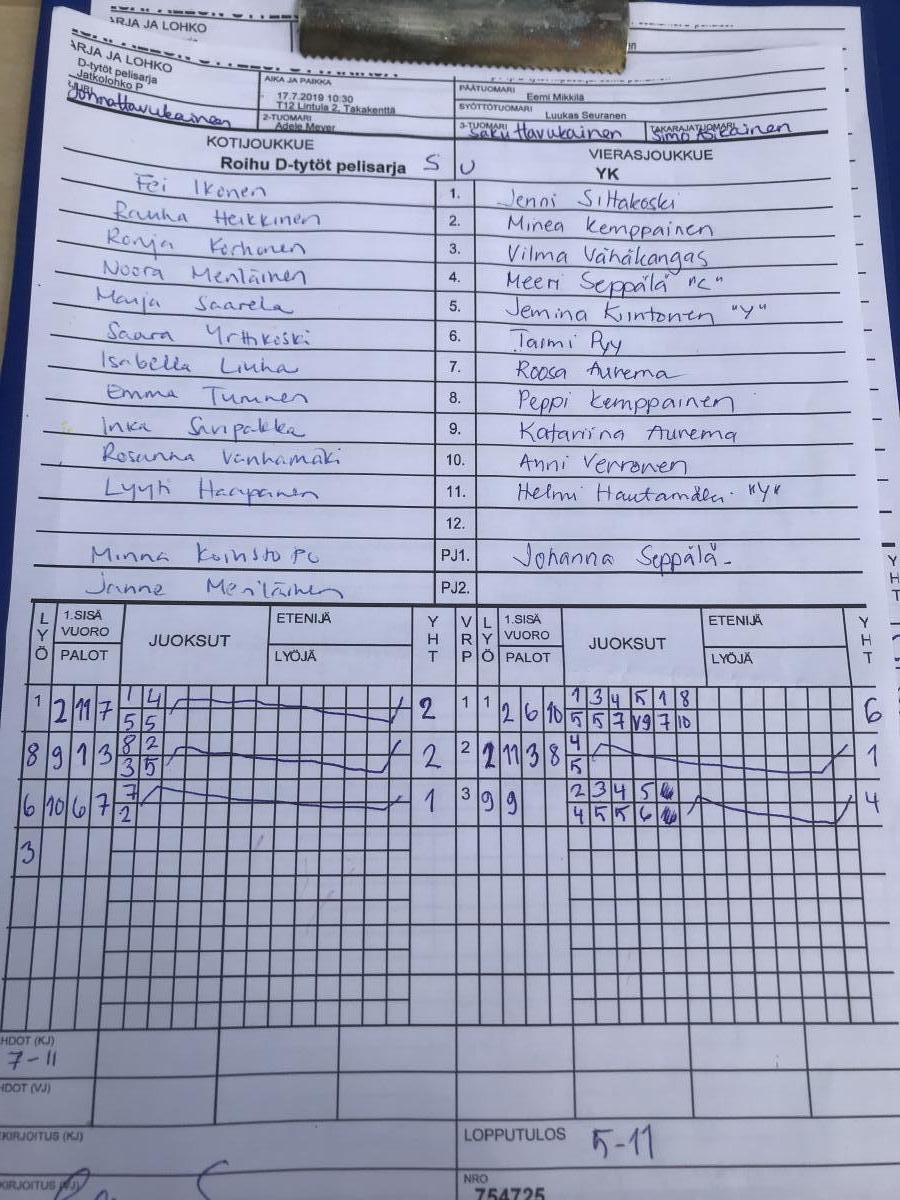 ARJA JA LOHKO
ARJA JA LOHKO
D-tytöt pelisarja
Jatkolohko P
AIKA JA PAIKKA
17.7.2019 10:30
T12 Lintula 2, Takakenttä
PÄÄTUOMARI
Eemi Mikkilä
SYÖTTÖTUOMARI
Luukas Seuranen
2-TUOMARI
Adele Meyer
3-TUOMARI
Saku Havukainen
TAKARAJATUOMARI
Simo Asikainen
KOTIJOUKKUE
Roihu D-tytöt pelisarja S
U VIERASJOUKKUE
YK
Fei Ikonen 1. Jenni Siltakoski
Rauha Heikkinen 2. Minea Kemppainen
Ronja Korhonen 3. Vilma Vähäkangas
Noora Meriläinen 4. Meeri Seppälä "C"
Marja Saarela 5. Jemina Kintonen "Y"
Saara Yrttikoski 6. Taimi Pyy
Isabella Liuha 7. Roosa Aurema
Emma 8. Peppi Kemppainen
Inka 9. Katariina Aurema
Rosanna Vanhamäki 10. Anni Verronen
Lyyti Haapanen 11. Helmi Hautamäki "Y"
12.
Minna PJ1. Johanna Seppälä
Janne Meriläinen PJ2.
LYÖ 1.SISÄ VUORO PALOT JUOKSUT ETENIJÄ LYÖJÄ YHT VRP LYÖ 1.SISÄ VUORO PALOT JUOKSUT ETENIJÄ LYÖJÄ YHT
1 2 11 7 1 4 2 1 1 2 6 10 1 3 4 5 1 8 6
5 5 5 5 7 V9 7 10
8 9 1 3 8 2 2 2 2 11 3 8 4 1
3 5 5
6 10 6 7 7 1 3 9 9 2 3 4 5 4
2 4 5 5 6
3
HDOT (KJ)
7-11
HDOT (VJ)
KIRJOITUS (KJ)
LOPPUTULOS 5-11
KIRJOITUS (VJ)
NRO
754725